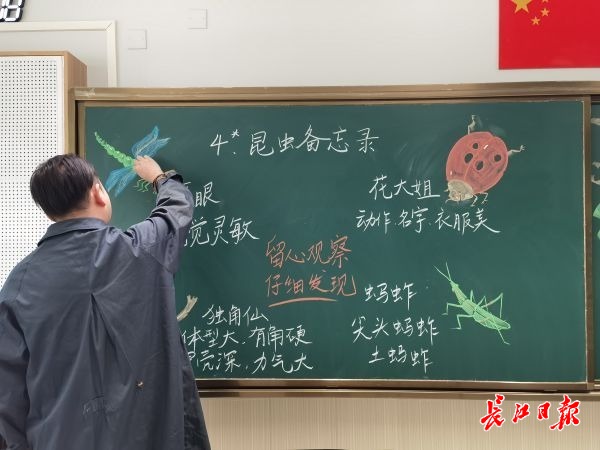 4*.昆虫备忘录
眼
觉灵敏
花大姐
动作.名字.衣服美
留心观察
仔细发现
独角仙
体型大、有角硬
壳深，力气大
蚂蚱
尖头蚂蚱
土蚂蚱
长江日报